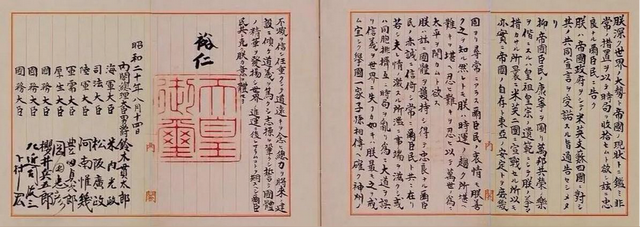 朕深ク世界ノ大勢ト帝國ノ現狀トニ鑑ミ非
常ノ措置ヲ以テ時局ヲ收拾セムト欲シ茲ニ忠
良ナル爾臣民ニ告ク
朕ハ帝國政府ヲシテ米英支蘇四國ニ對シ
其ノ共同宣言ヲ受諾スル旨通告セシメタリ
抑〻帝國臣民ノ康寧ヲ圖リ萬邦共榮ノ樂
ヲ偕ニスルハ皇祖皇宗ノ遺範ニシテ朕ノ拳々
措カサル所曩ニ米英二國ニ宣戰セル所以モ
亦實ニ帝國ノ自存ト東亞ノ安定トヲ庶幾
内閣
固ヨリ尋常ニアラス爾臣民ノ衷情モ朕善
ク之ヲ知ル然レトモ朕ハ時運ノ趨ク所堪ヘ
難キヲ堪ヘ忍ヒ難キヲ忍ヒ以テ萬世ノ爲ニ
太平ヲ開カムト欲ス
朕ハ茲ニ國體ヲ護持シ得テ忠良ナル爾臣
民ノ赤誠ニ信倚シ常ニ爾臣民ト共ニ在リ
若シ夫レ情ノ激スル所濫ニ事端ヲ滋クシ或
ハ同胞排擠互ニ時局ヲ亂リ爲ニ大道ヲ誤
リ信義ヲ世界ニ失フカ如キハ朕最モ之ヲ戒
ム宜シク擧國一家子孫相傳ヘ確ク神州ノ
不滅ヲ信シ任重クシテ道遠キヲ念ヒ總力ヲ將來ノ建
設ニ傾ケ道義ヲ篤クシ志操ヲ鞏クシ誓テ國體
ノ精華ヲ發揚シ世界ノ進運ニ後レサラムコトヲ期スヘシ爾臣
民其レ克ク朕カ意ヲ體セヨ
裕仁
天皇
御璽
内閣
昭和二十年八月十四日
内閣總理大臣男爵 鈴木貫太郎
海軍大臣 米内光政
司法大臣 松阪廣政
陸軍大臣 阿南惟幾
軍需大臣 豐田貞次郎
厚生大臣 岡田忠彦
國務大臣 櫻井兵五郎
國務大臣 左近司政三
國務大臣 下村宏